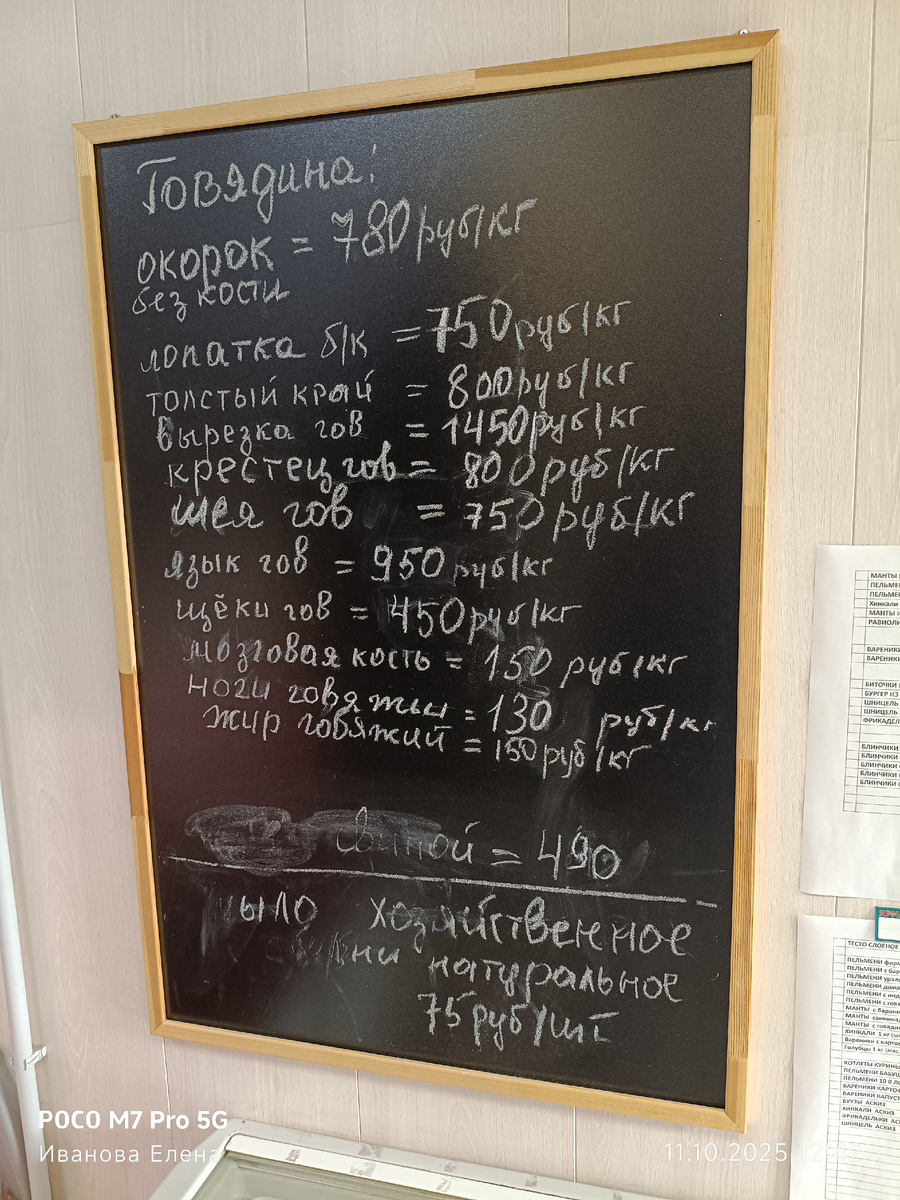 Говядина:
окорок = 780 руб/кг
без кости
лопатка б/к = 750 руб/кг
толстый край = 800 руб/кг
вырезка гов = 1450 руб/кг
крестец гов = 800 руб/кг
шея гов = 750 руб/кг
язык гов = 950 руб/кг
щёки гов = 450 руб/кг
мозговая кость = 150 руб/кг
ноги говяжьи = 130 руб/кг
жир говяжий = 150 руб/кг
= 490
мыло хозяйственное
натуральное
75 руб/шт
МАНТЫ
ПЕЛЬМЕ
ПЕЛЬМЕ
Хинкали
МАНТЫ И
РАВИОЛИ
ВАРЕНИКИ
ВАРЕНИКИ
БИТОЧКИ
БУРГЕР ИЗ
ШНИЦЕЛЬ
ШНИЦЕЛЬ
ФРИКАДЕЛ
БЛИНЧИКИ
БЛИНЧИКИ
БЛИНЧИКИ С
БЛИНЧИКИ
БЛИНЧИКИ С
ТЕСТО СЛОЕНОЕ
ПЕЛЬМЕНИ фирм
ПЕЛЬМЕНИ с бар
ПЕЛЬМЕНИ урал
ПЕЛЬМЕНИ дома
ПЕЛЬМЕНИ с инд
ПЕЛЬМЕНИ с говя
МАНТЫ с баран
МАНТЫ свинина
МАНТЫ с говяди
ХИНКАЛИ 1 кг
Вареники с карто
Голубцы 1 кг (мяс
КОТЛЕТЫ КУРИНЫ
ПЕЛЬМЕНИ БАБУШ
ПЕЛЬМЕНИ 10 В ЛО
ВАРЕНИКИ КАРТОФ
ВАРЕНИКИ КАПУСТ
БУУЗЫ АСКИЗ
ХИНКАЛИ АСКИЗ
ФРИКАДЕЛЬКИ АСКИЗ
ШНИЦЕЛЬ АСКИЗ
POCO M7 Pro 5G
Иванова Елена
11.10.2025